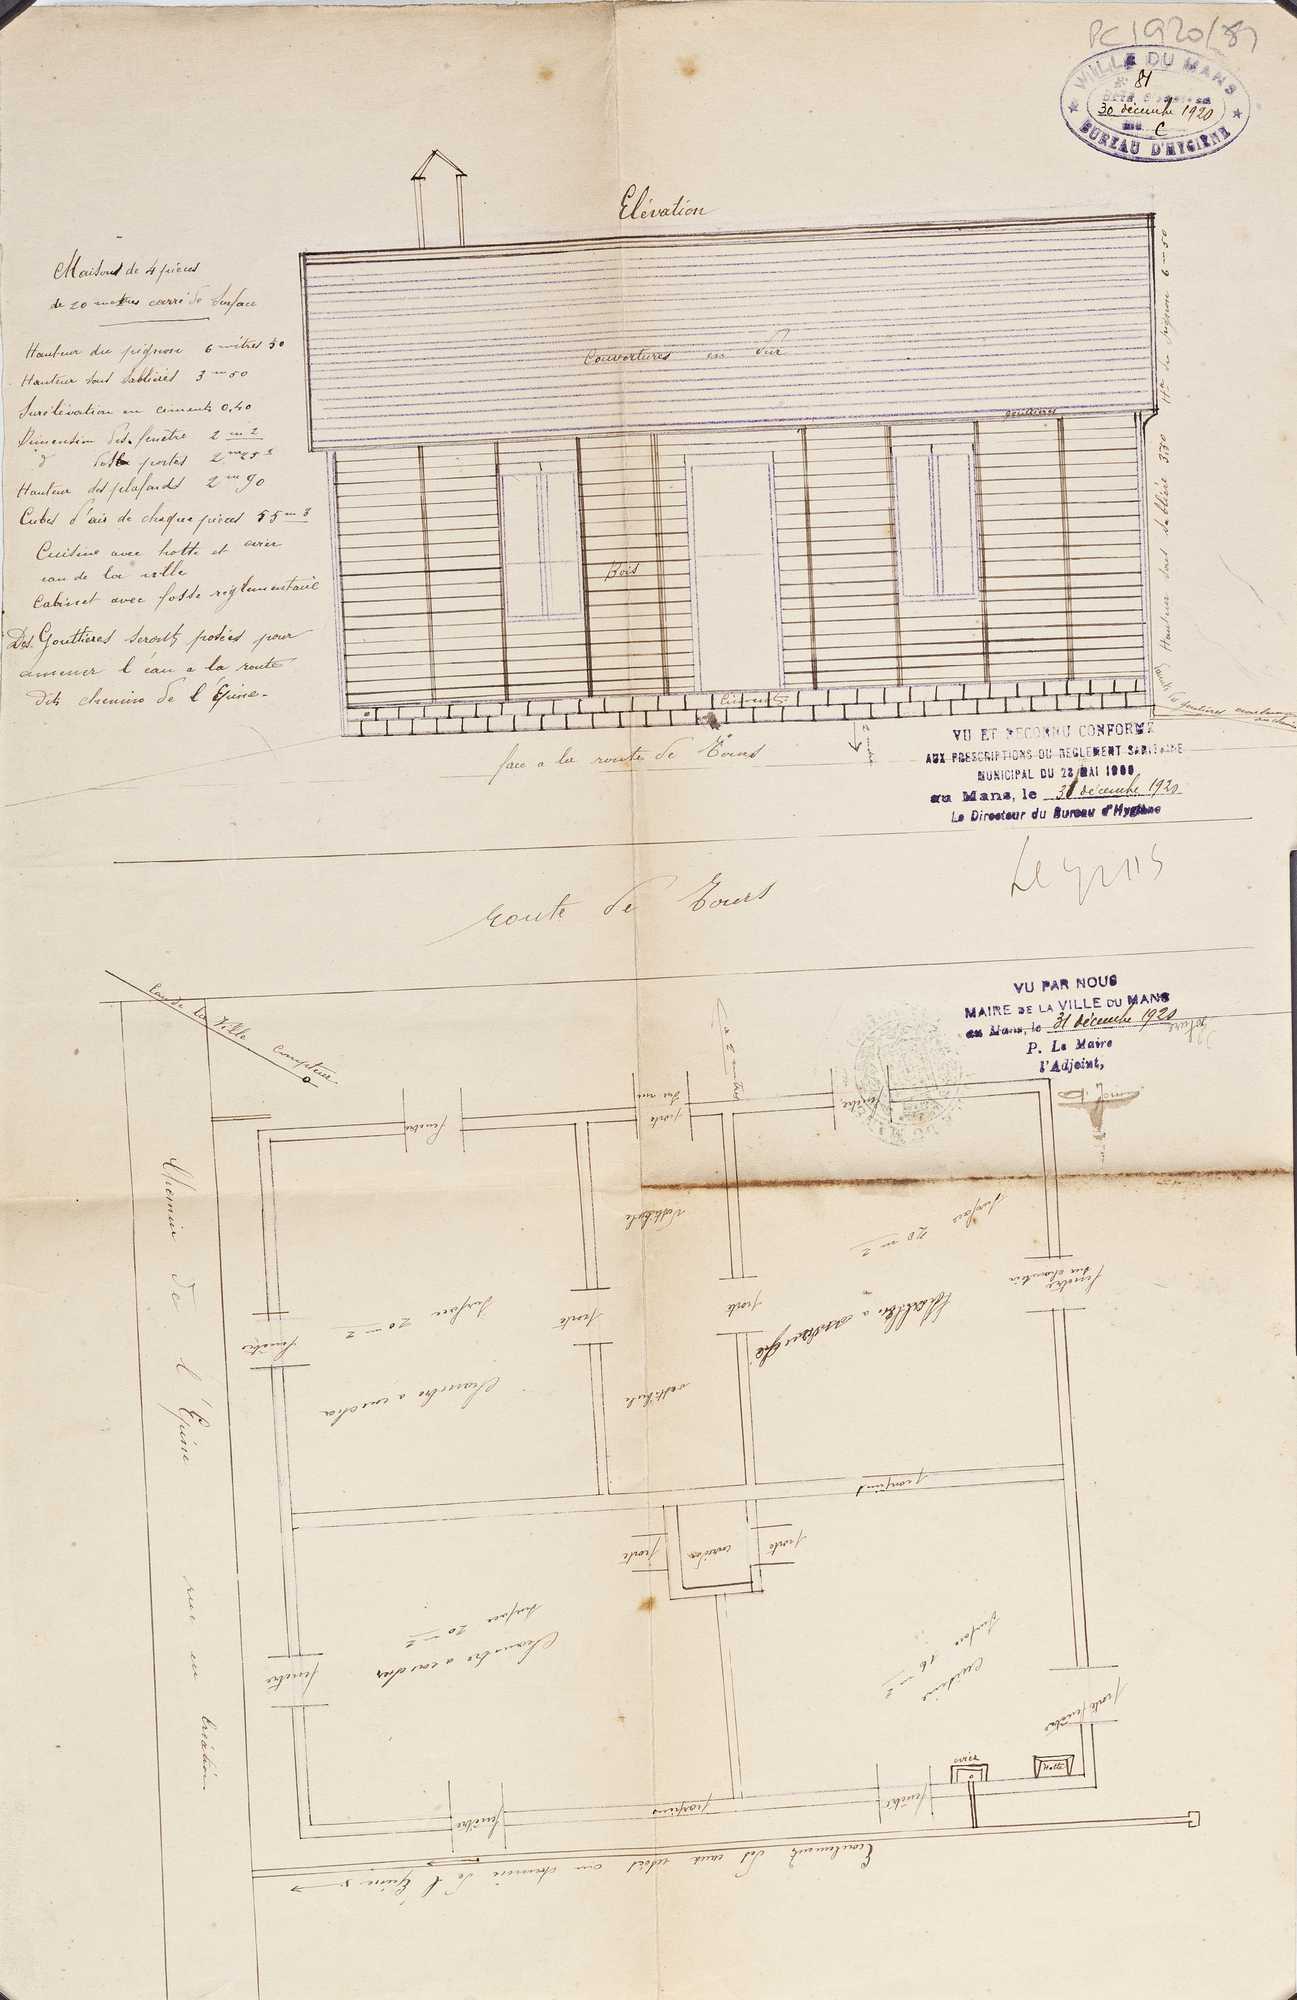 PC 1920/81
VILLE DU MANS
81
30 décembre 1920
C
BUREAU D'HYGIÈNE
Elévation
Maisons de 4 pièces
de 20 metres carré de Surface
Hauteur du pignon 6 mètres 50
Hauteur sous Sablières 3 m 50
Surélévation en ciments 0,40
Dimension des fenêtre 2 m 2
d° portes
Hauteur des plafonds 2 m 90
Cubes d'air de chaque pièces 55 m 3
Cuisine avec hotte et evier
eau de la ville
Cabinet avec fosse réglementaire
Des Gouttières seront posées pour
amener l'éau a la route
dits chemins de l'Épine-
Couvertures en
gouttières
Bois
Ciments
Htr du pignon 6-50
Hauteur sous sablière 3,50
face a la route de Tours
VU ET RECONNU CONFORME
AUX PRESCRIPTIONS DU RÈGLEMENT SANITAIRE
MUNICIPAL DU 22 MAI
au Mans, le 31 décembre 1920
Le Directeur du Bureau d'Hygiène
route de Tours
VU PAR NOUS
MAIRE DE LA VILLE DU MANS
au Mans, le 31 décembre 1920
P. Le Maire
l'Adjoint,
eau de la Ville compteur
a 2 mètres
fenêtre
porte
sur rue
fenêtre
Vestibule
surface 20 m 2
fenêtre
Chemin de l'Épine rue en création
surface 20 m 2
porte
porte
fenêtre
Chambre a coucher
vestibule
porte
corridor
porte
surface 20 m 2
Chambre a coucher
surface 16 m 2
cuisine
fenêtre
porte fenêtre
evier
Hotte
fenêtre
fenêtre
Ecoulement des eaux usées au chemin de l'Épine